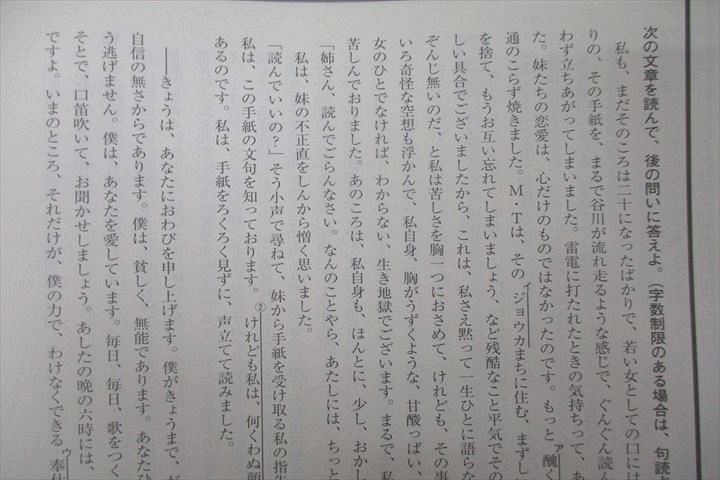 次の文章を読んで、後の問いに答えよ。（字数制限のある場合は、句読
私も、まだそのころは二十になったばかりで、若い女としての口には
りの、その手紙を、まるで谷川が流れ走るような感じで、ぐんぐん読ん
わず立ちあがってしまいました。雷電に打たれたときの気持ちって、あ
た。妹たちの恋愛は、心だけのものではなかったのです。もっとア醜く
通のこらず焼きました。M・Tは、そのイジョウカまちに住む、まずし
を捨て、もうお互い忘れてしまいましょう、など残酷なこと平気でその
しい具合でございましたから、これは、私さえ黙って一生ひとに語らな
ぞんじ無いのだ、と私は苦しさを胸一つにおさめて、けれども、その事
いろ奇怪な空想も浮かんで、私自身、胸がうずくような、甘酸っぱい、
女のひとでなければ、わからない、生き地獄でございます。まるで、私
苦しんでおりました。あのころは、私自身も、ほんとに、少し、おかし
「姉さん、読んでごらんなさい。なんのことやら、あたしには、ちっと
私は、妹の不正直をしんから憎く思いました。
「読んでいいの？」そう小声で尋ねて、妹から手紙を受け取る私の指先
私は、この手紙の文句を知っております。②けれども私は、何くわぬ顔
あるのです。私は、手紙をろくろく見ずに、声立てて読みました。
――きょうは、あなたにおわびを申し上げます。僕がきょうまで、が
自信の無さからであります。僕は、貧しく、無能であります。あなたひ
う逃げません。僕は、あなたを愛しています。毎日、毎日、歌をつく
そとで、口笛吹いて、お聞かせしましょう。あしたの晩の六時には、
ですよ。いまのところ、それだけが、僕の力で、わけなくできるウ奉仕